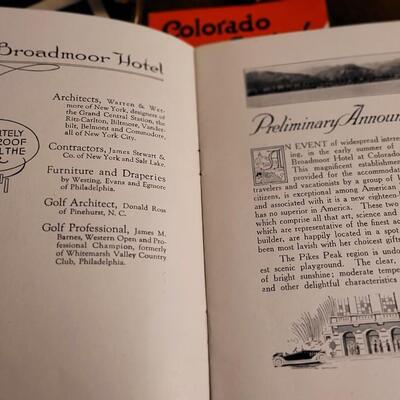 Colorado
Broadmoor Hotel
Architects, Warren & Wet-
more of New York, designers of
the Grand Central Station, the
Ritz-Carlton, Biltmore, Vander-
bilt, Belmont and Commodore,
all of New York City.
Contractors, James Stewart &
Co. of New York and Salt Lake.
Furniture and Draperies
by Werting, Evans and Egmore
of Philadelphia.
Golf Architect, Donald Ross
of Pinehurst, N. C.
Golf Professional, James M.
Barnes, Western Open and Pro-
fessional Champion, formerly
of Whitemarsh Valley Country
Club, Philadelphia.
Preliminary Announ
AN EVENT of widespread intere
ing, in the early summer of
Broadmoor Hotel at Colorado
This magnificent establishment
provided for the accommodation
travelers and vacationists by a group of
citizens, is exceptional among American
and associated with it is a new eighteen
has no superior in America. These two
which comprise all that art, science and
which are representative of the finest ac
builder, are happily located in a spot
been most lavish with her choicest gifts
The Pikes Peak region is undou
est scenic playground. The clear,
of bright sunshine; moderate tempe
and other delightful characteristics